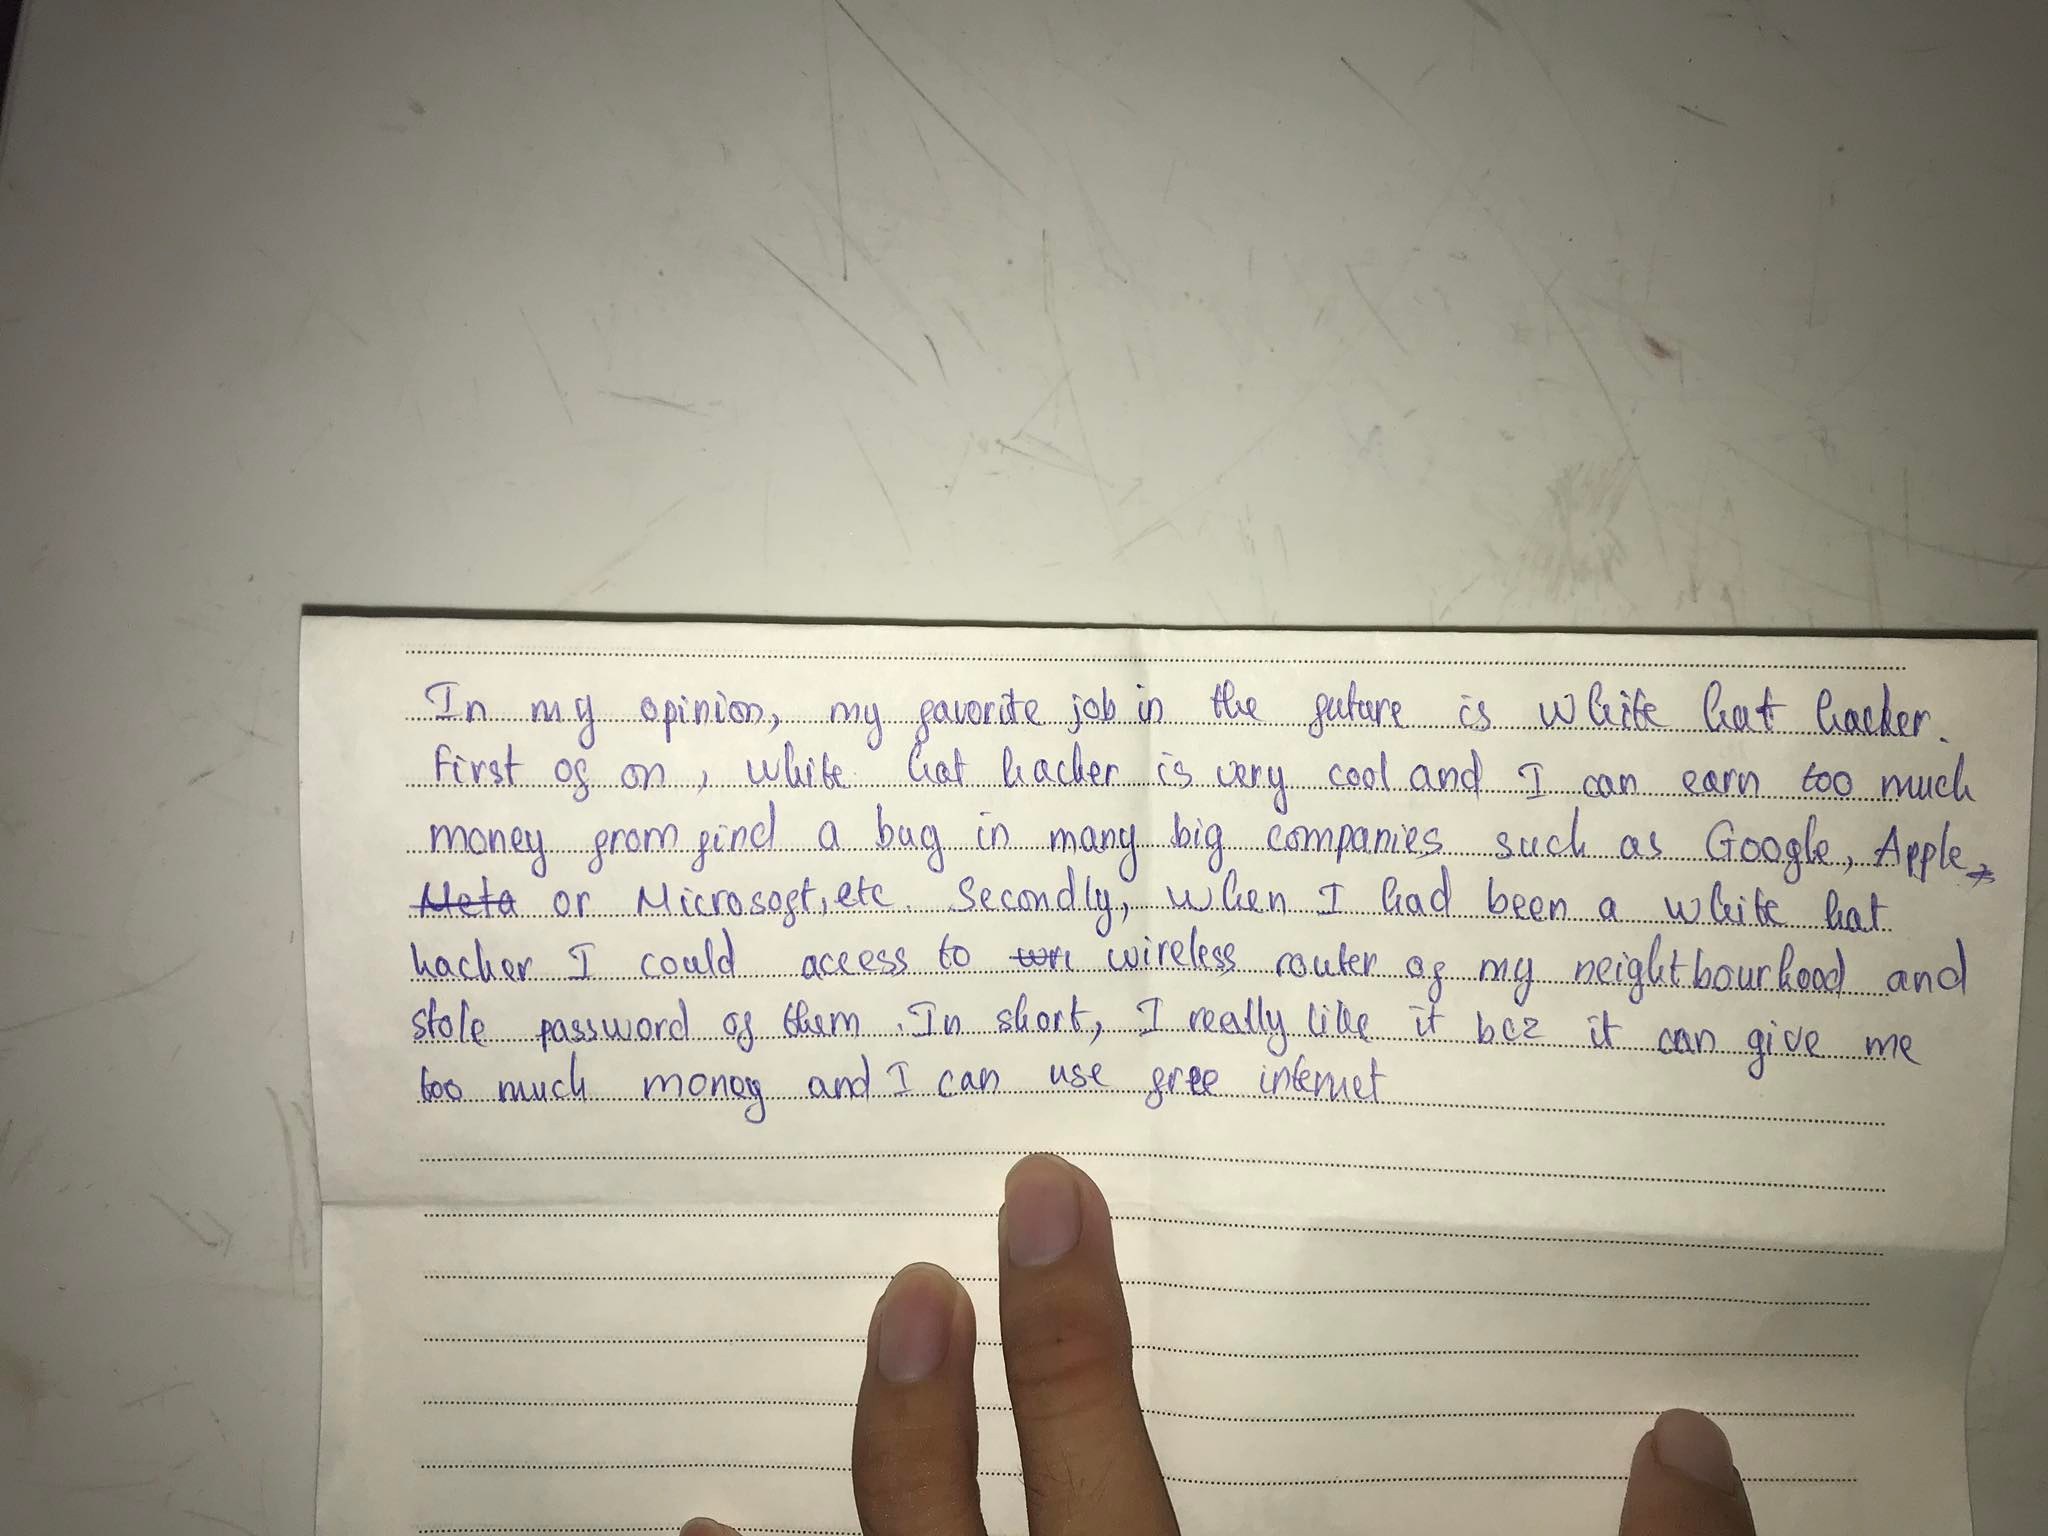 In my opinion, my favorite job in the future is white hat hacker.
First of on, white hat hacker is very cool and I can earn too much
money from find a bug in many big companies such as Google, Apple,
Meta or Microsoft, etc. Secondly, when I had been a white hat
hacker I could access to wri wireless router of my neightbourhood and
stole password of them. In short, I really like it bcz it can give me
too much money and I can use free internet